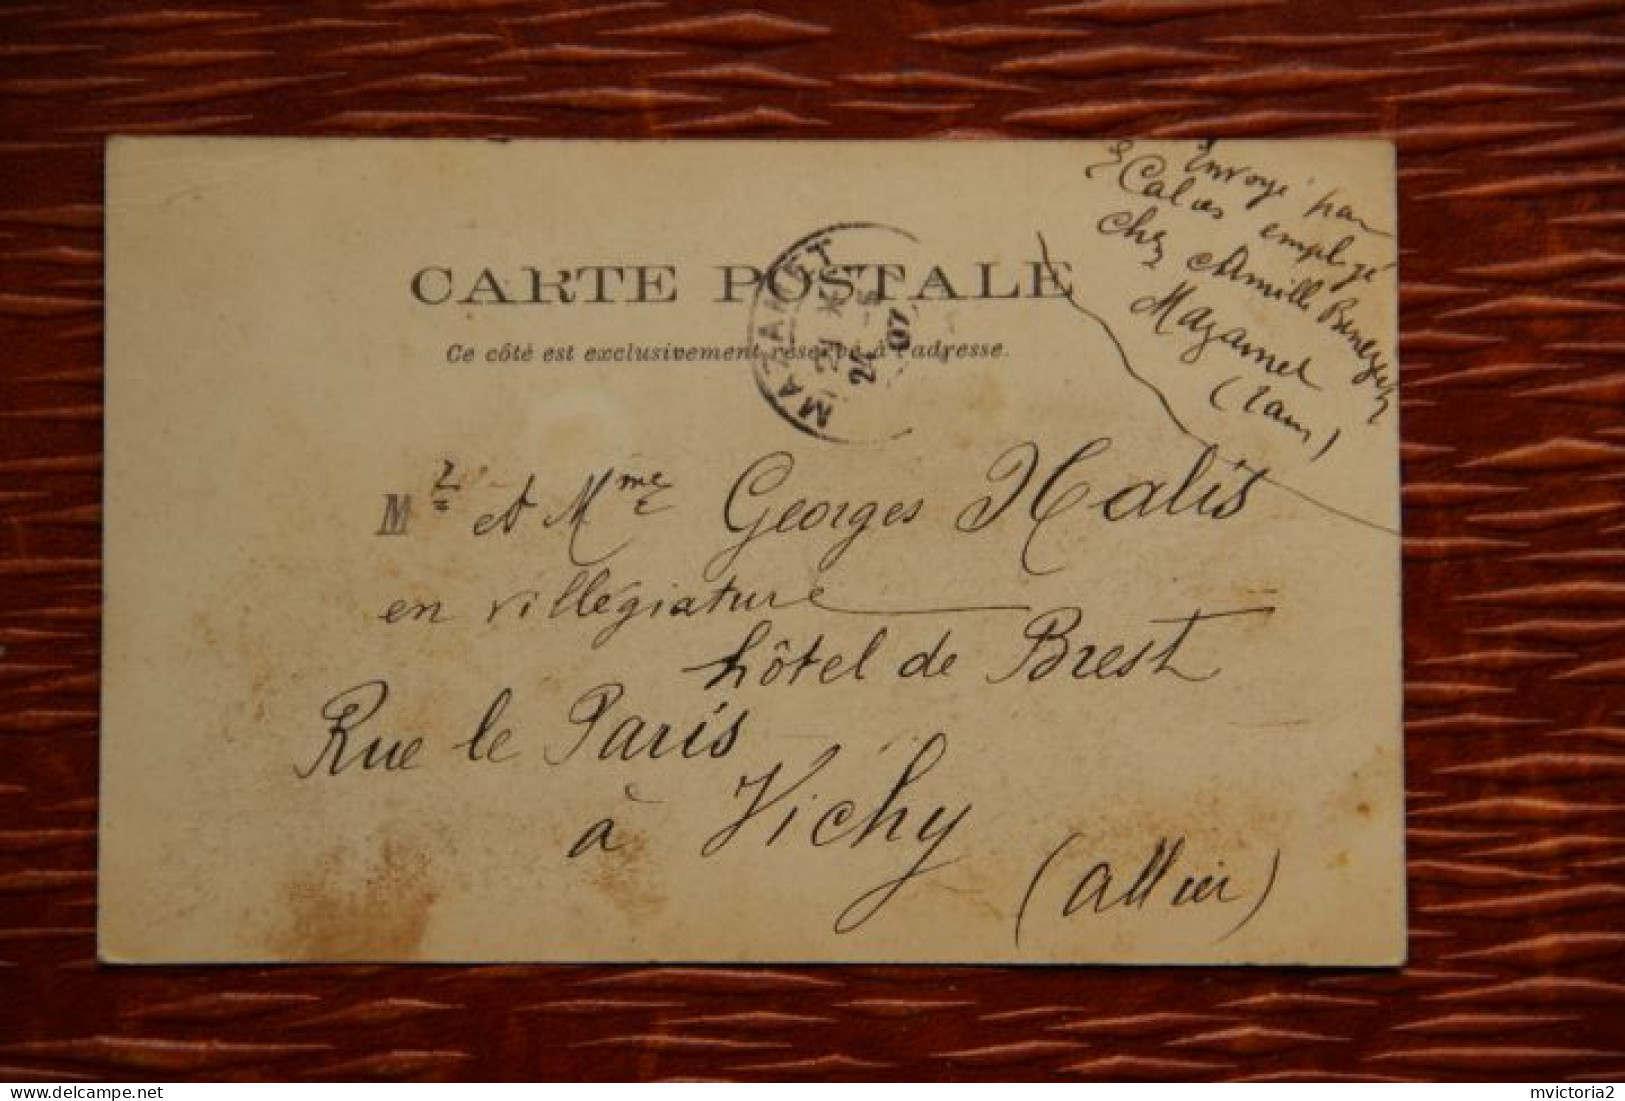 Envoyé par
E Calas employé
chez Camille
Mazamet
(Tarn)
CARTE POSTALE
Ce côté est exclusivement réservé à l'adresse.
MAZAMET
21 *
24 -5
07
Mr et Mme Georges Halis
en villégiature
hôtel de Brest
Rue le Paris
à Vichy
(Allier)
mvictoria2